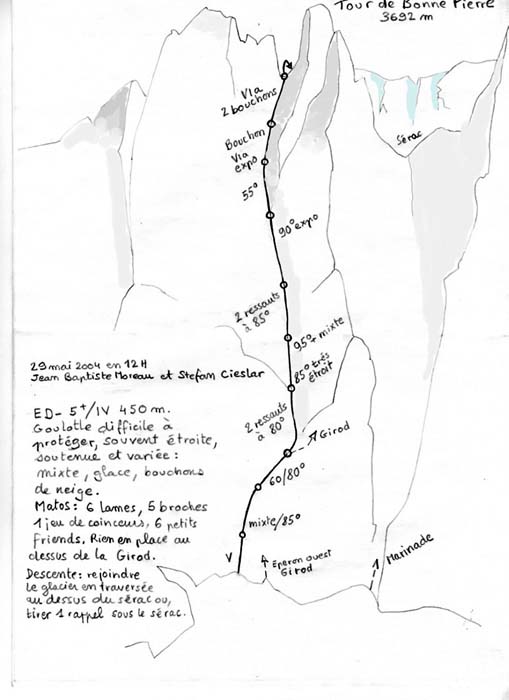 Tour de Bonne Pierre
3692 m
VIa
2 bouchons
Bouchon
VIa
expo
Sérac
55°
90° expo
2 ressauts
à 85°
95° + mixte
85° très
étroit
2 ressauts
à 80°
Girod
60/80°
mixte/85°
V
Eperon ouest
Girod
Marinade
29 mai 2004 en 12H
Jean Baptiste Moreau et Stefan Cieslar
ED- 5+/IV 450 m.
Goulotte difficile à
protéger, souvent étroite,
soutenue et variée :
mixte, glace, bouchons
de neige.
Matos : 6 lames, 5 broches
1 jeu de coinceurs, 6 petits
friends. Rien en place au
dessus de la Girod.
Descente : rejoindre
le glacier en traversée
au dessus du sérac ou,
tirer 1 rappel sous le sérac.